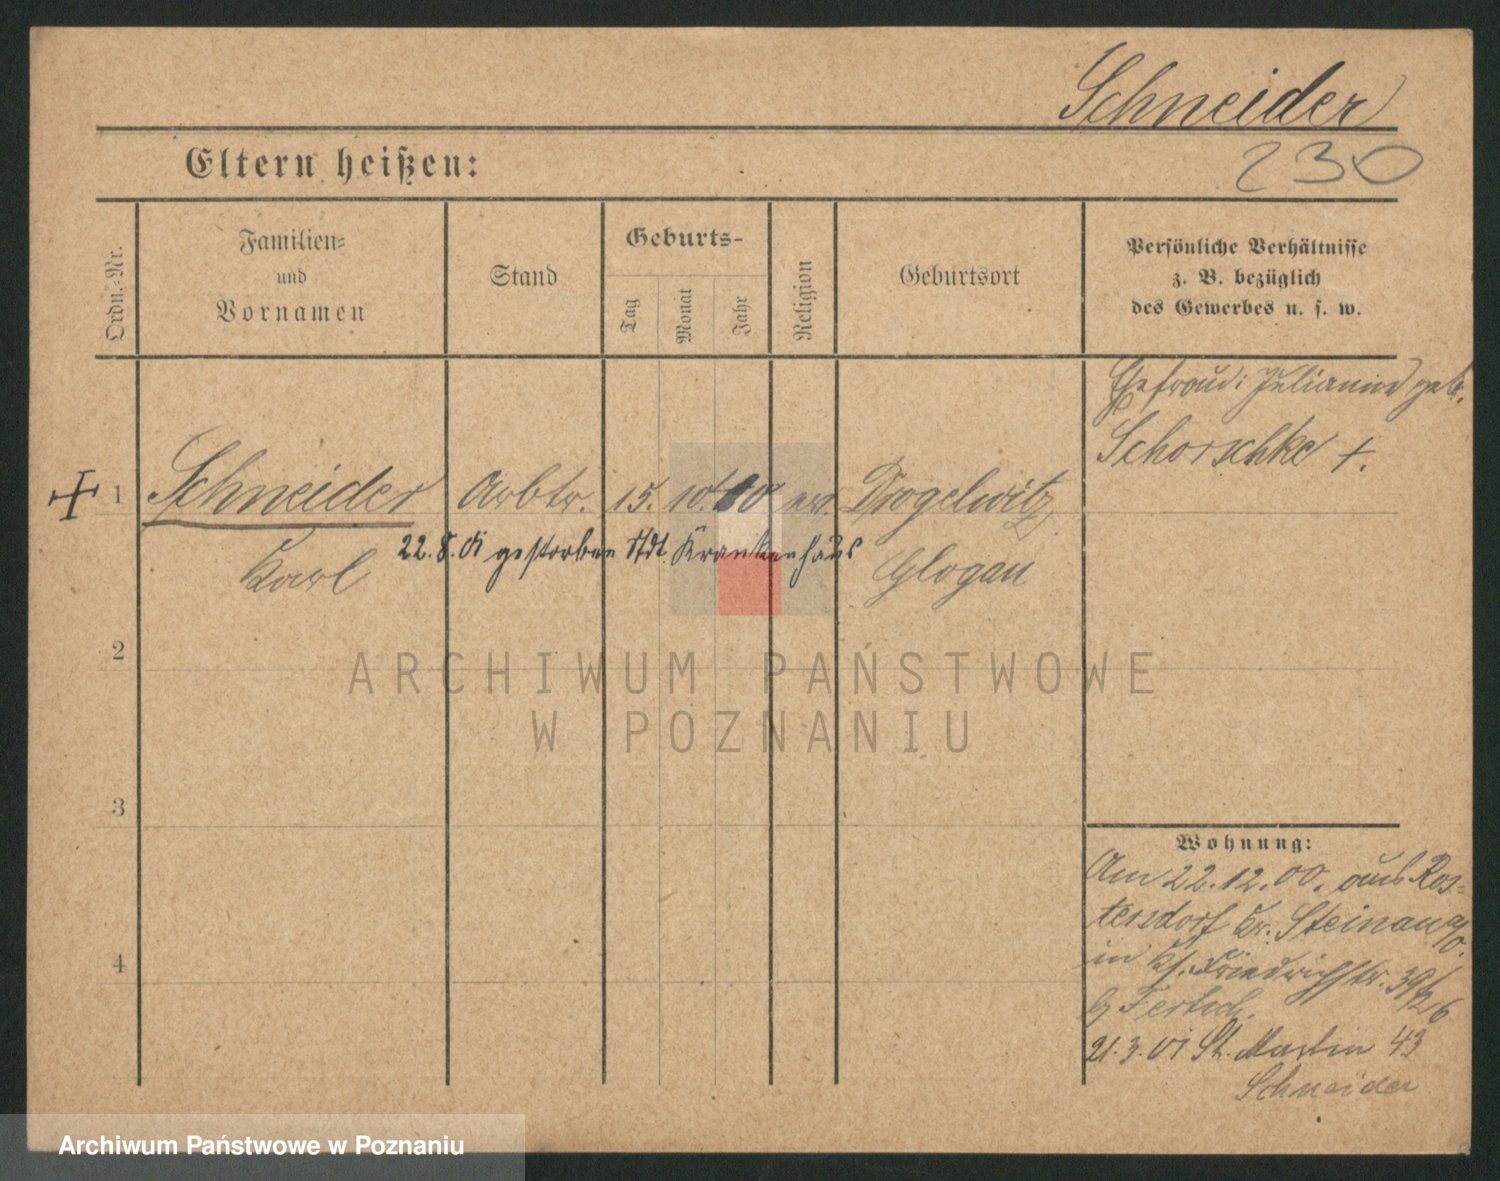 Schneider
230
Eltern heißen:
Ordn.-Nr.
Familien-
und
Vornamen
Stand
Geburts-
Tag
Monat
Jahr
Religion
Geburtsort
Persönliche Verhältnisse
z. B. bezüglich
des Gewerbes u. s. w.
Ehefrau: Julianne geb.
Schorschke +.
1 Schneider Arbtr. 15. 10. ev.
22. 8. 01 gestorben Stdt. Krankenhaus
Karl Glogau
2
3
4
Wohnung:
Am 22.12.00. aus Ros-
tersdorf Kr. Steinau a/O.
in Friedrichstr. 30
b/
21.3.01 St. Martin 43
Schneider
ARCHIWUM PAŃSTWOWE
W POZNANIU
Archiwum Państwowe w Poznaniu